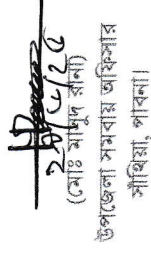 ২৪/৫/২৫
(মোঃ মাসুদ রানা)
উপজেলা সমবায় অফিসার
সাঁথিয়া, পাবনা।